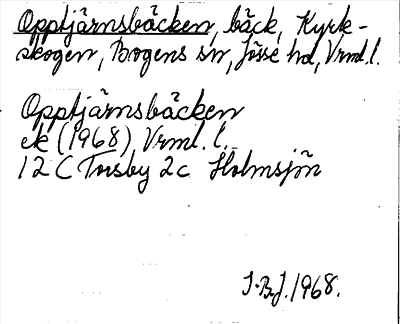 Opptjärnsbäcken, bäck, Kyrk-
skogen, Bogens sn, Jösse hd, Vrml.l.
Opptjärnsbäcken
ek (1968), Vrml. l.
12 C Torsby 2c Holmsjön
J.Bj. 1968.